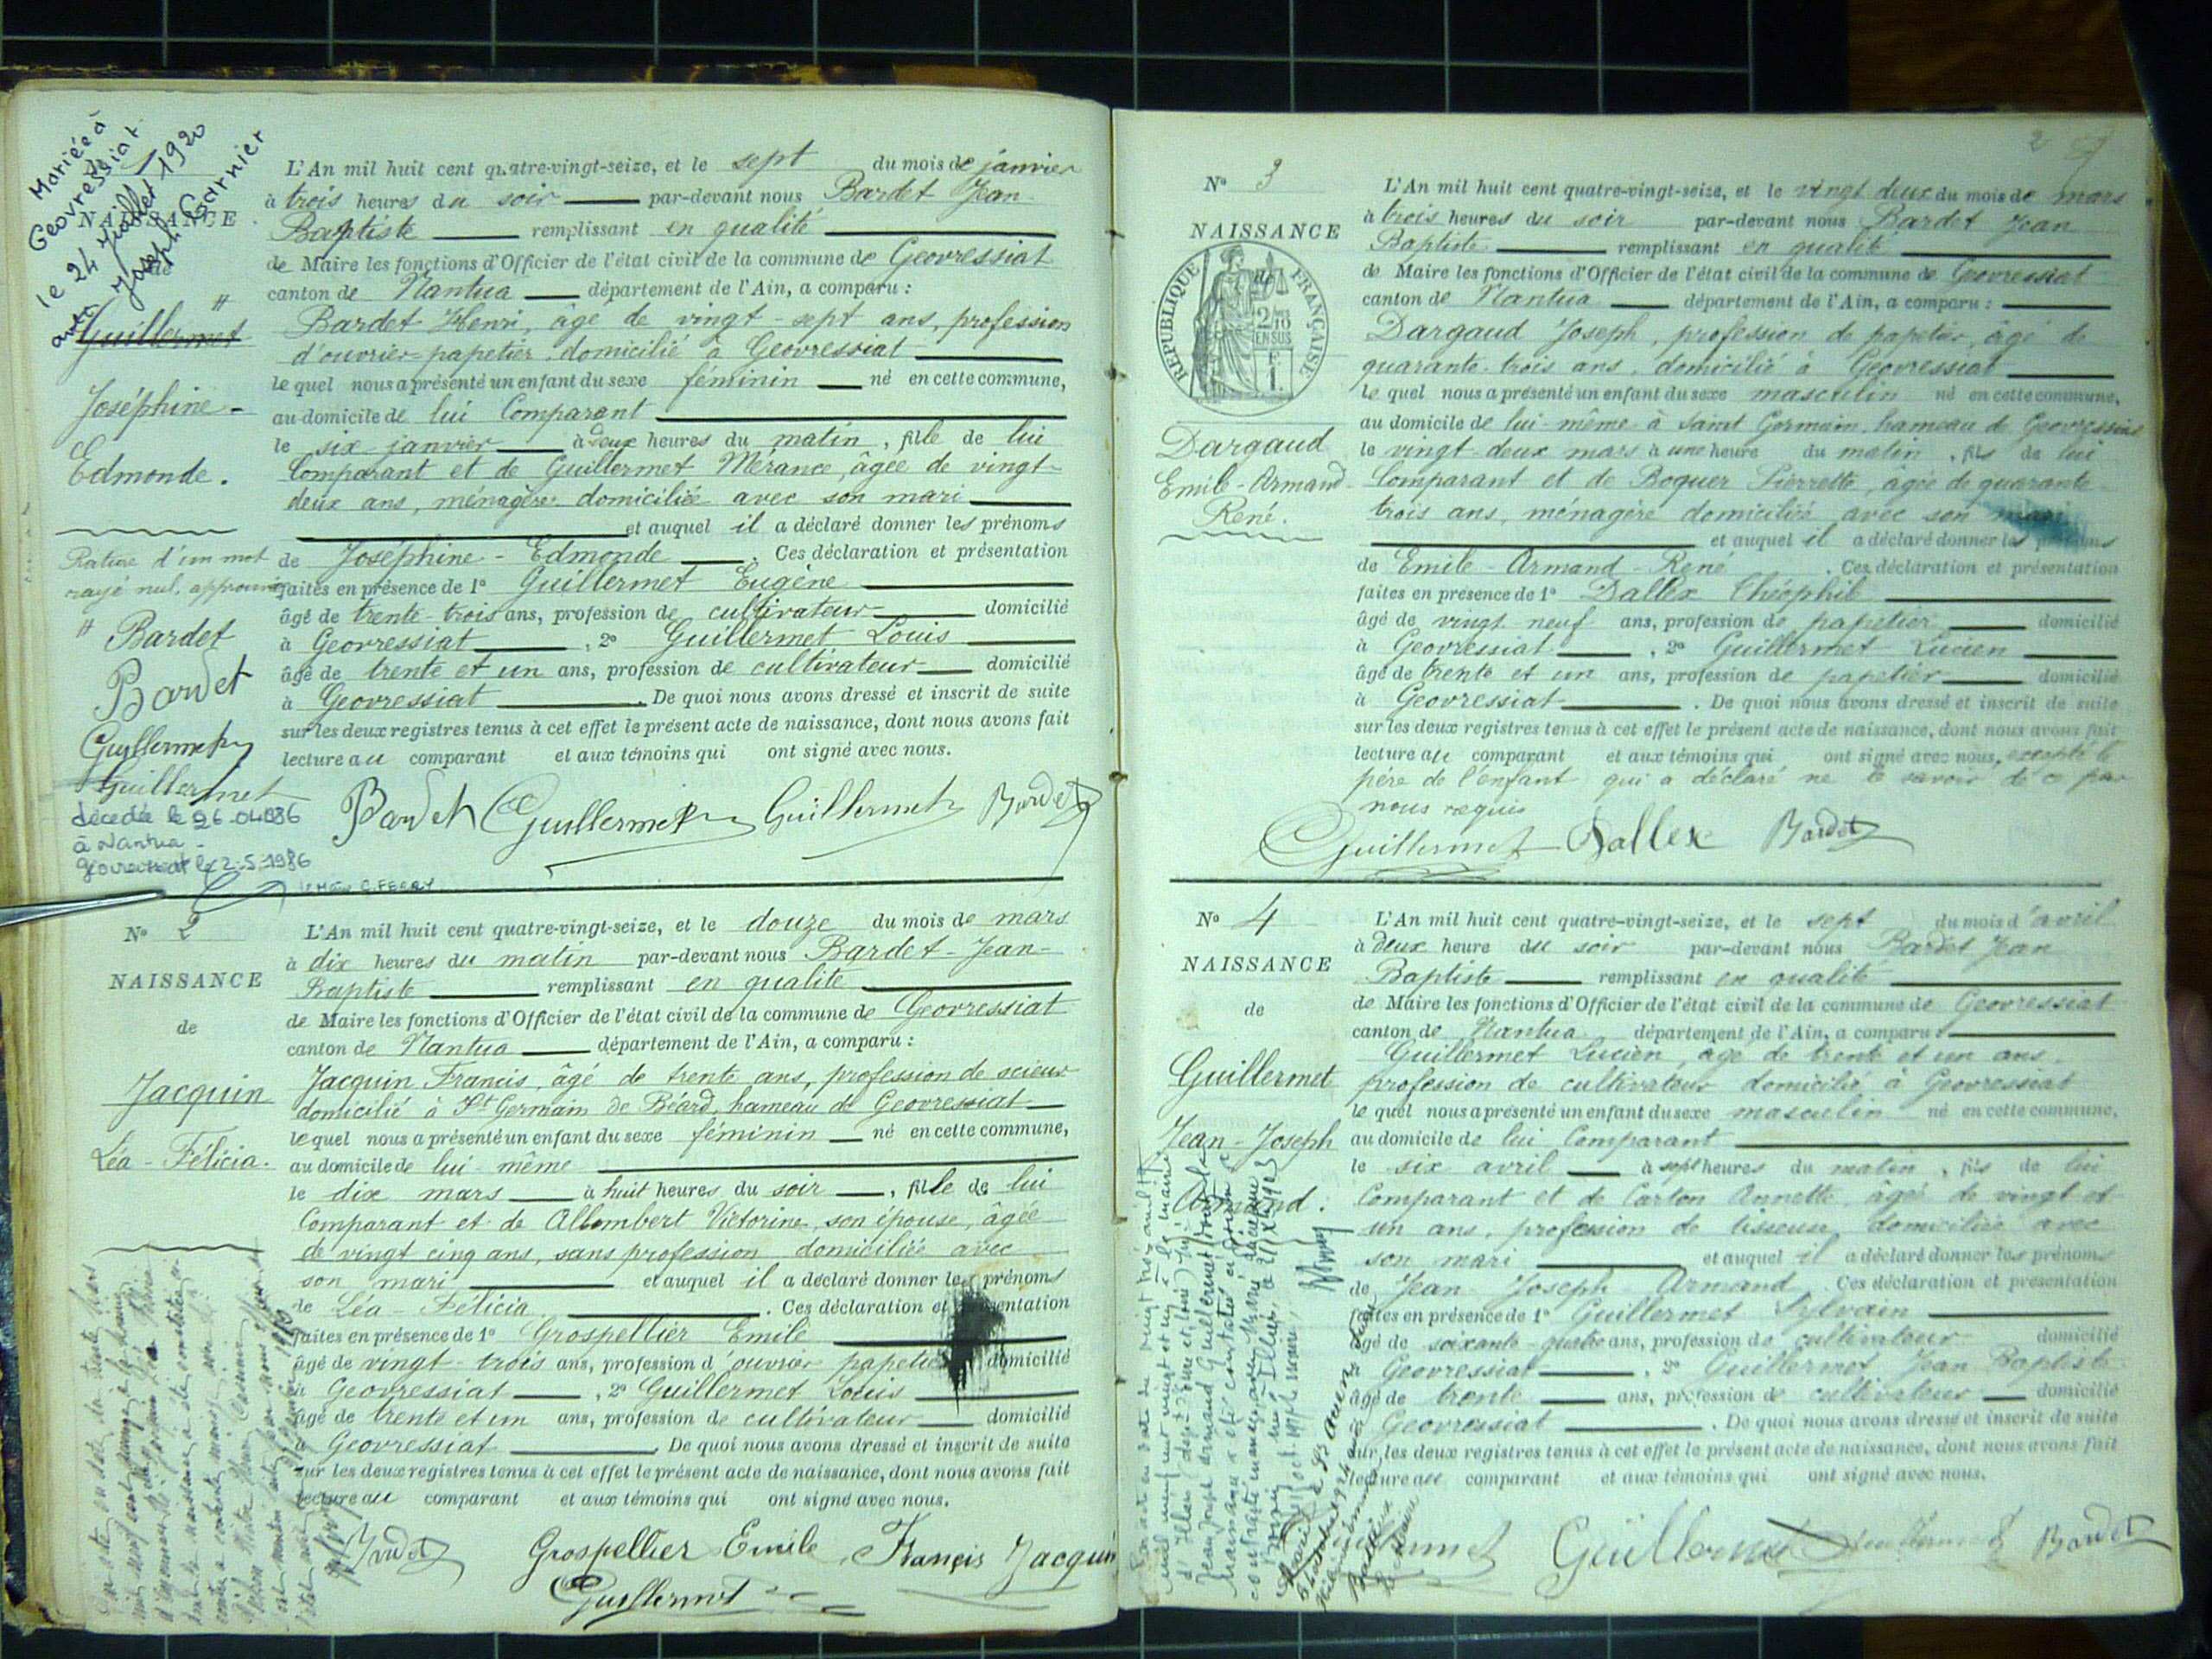 Mariée à
Geovressiat
le 24 Juillet 1920
avec Joseph Garnier
NAISSANCE
de
Guillermet
Joséphine -
Edmonde.
Rature d'un mot
rayé nul, approuvée
Bardet
Bardet
Guillermet
Guillermet
décédée le 26-04-1986
à Nantua -
le 2-5-1986
L'An mil huit cent quatre-vingt-seize, et le sept du mois de janvier
à trois heures du soir par-devant nous Bardet Jean
Baptiste remplissant en qualité
de Maire les fonctions d'Officier de l'état civil de la commune de Geovressiat
canton de Nantua département de l'Ain, a comparu :
Bardet Henri, âgé de vingt-sept ans, profession
d'ouvrier-papetier, domicilié à Geovressiat
lequel nous a présenté un enfant du sexe féminin né en cette commune,
au domicile de lui Comparant
le six janvier à deux heures du matin, fille de lui
Comparant et de Guillermet Mérance, âgée de vingt-
deux ans, ménagère domiciliée avec son mari
et auquel il a déclaré donner les prénoms
de Joséphine - Edmonde. Ces déclaration et présentation
faites en présence de 1° Guillermet Eugène
âgé de trente-trois ans, profession de cultivateur domicilié
à Geovressiat, 2° Guillermet Louis
âgé de trente et un ans, profession de cultivateur domicilié
à Geovressiat. De quoi nous avons dressé et inscrit de suite
sur les deux registres tenus à cet effet le présent acte de naissance, dont nous avons fait
lecture au comparant et aux témoins qui ont signé avec nous.
Bardet Guillermet Guillermet Bardet
N° 2
NAISSANCE
de
Jacquin
Léa - Félicia.
L'An mil huit cent quatre-vingt-seize, et le douze du mois de mars
à dix heures du matin par-devant nous Bardet-Jean-
Baptiste remplissant en qualité
de Maire les fonctions d'Officier de l'état civil de la commune de Geovressiat
canton de Nantua département de l'Ain, a comparu :
Jacquin Francis, âgé de trente ans, profession de scieur
domicilié à St Germain de Béard, hameau de Geovressiat
lequel nous a présenté un enfant du sexe féminin né en cette commune,
au domicile de lui-même
le dix mars à huit heures du soir, fille de lui
Comparant et de Allombert Victorine, son épouse, âgée
de vingt cinq ans, sans profession domiciliée avec
son mari et auquel il a déclaré donner les prénoms
de Léa - Félicia. Ces déclaration et présentation
faites en présence de 1° Grospellier Emile
âgé de vingt-trois ans, profession d'ouvrier papetier domicilié
à Geovressiat, 2° Guillermet Louis
âgé de trente et un ans, profession de cultivateur domicilié
à Geovressiat. De quoi nous avons dressé et inscrit de suite
sur les deux registres tenus à cet effet le présent acte de naissance, dont nous avons fait
lecture au comparant et aux témoins qui ont signé avec nous.
Bardet Grospellier Emile Francis Jacquin
Guillermet
2
N° 3
NAISSANCE
de
REPUBLIQUE FRANÇAISE
2/10 EN SUS
Dargaud
Emile-Armand-
René.
L'An mil huit cent quatre-vingt-seize, et le vingt deux du mois de mars
à trois heures du soir par-devant nous Bardet Jean
Baptiste remplissant en qualité
de Maire les fonctions d'Officier de l'état civil de la commune de Geovressiat
canton de Nantua département de l'Ain, a comparu :
Dargaud Joseph, profession de papetier, âgé de
quarante-trois ans, domicilié à Geovressiat
lequel nous a présenté un enfant du sexe masculin né en cette commune,
au domicile de lui-même à Saint Germain, hameau de Geovressiat
le vingt-deux mars à une heure du matin, fils de lui
Comparant et de Boquer Pierrette, âgée de quarante-
trois ans, ménagère domiciliée avec son mari
et auquel il a déclaré donner les prénoms
de Emile-Armand-René. Ces déclaration et présentation
faites en présence de 1° Dallex Théophile
âgé de vingt-neuf ans, profession de papetier domicilié
à Geovressiat, 2° Guillermet Lucien
âgé de trente et un ans, profession de papetier domicilié
à Geovressiat. De quoi nous avons dressé et inscrit de suite
sur les deux registres tenus à cet effet le présent acte de naissance, dont nous avons fait
lecture au comparant et aux témoins qui ont signé avec nous, excepté le
père de l'enfant qui a déclaré ne le savoir de ce par
nous requis
Guillermet Dallex Bardet
N° 4
NAISSANCE
de
Guillermet
Jean-Joseph
Armand.
L'An mil huit cent quatre-vingt-seize, et le sept du mois d'avril
à deux heure du soir par-devant nous Bardet Jean
Baptiste remplissant en qualité
de Maire les fonctions d'Officier de l'état civil de la commune de Geovressiat
canton de Nantua département de l'Ain, a comparu :
Guillermet Lucien, âgé de trente et un ans,
profession de cultivateur domicilié à Geovressiat
lequel nous a présenté un enfant du sexe masculin né en cette commune,
au domicile de lui Comparant
le six avril à sept heures du matin, fils de lui
Comparant et de Carton Annette, âgée de vingt et
un ans, profession de tisseuse, domiciliée avec
son mari et auquel il a déclaré donner les prénoms
de Jean-Joseph Armand. Ces déclaration et présentation
faites en présence de 1° Guillermet Sylvain
âgé de soixante-quatre ans, profession de cultivateur domicilié
à Geovressiat, 2° Guillermet Jean-Baptiste
âgé de trente ans, profession de cultivateur domicilié
à Geovressiat. De quoi nous avons dressé et inscrit de suite
sur les deux registres tenus à cet effet le présent acte de naissance, dont nous avons fait
lecture au comparant et aux témoins qui ont signé avec nous.
Guillermet Bardet